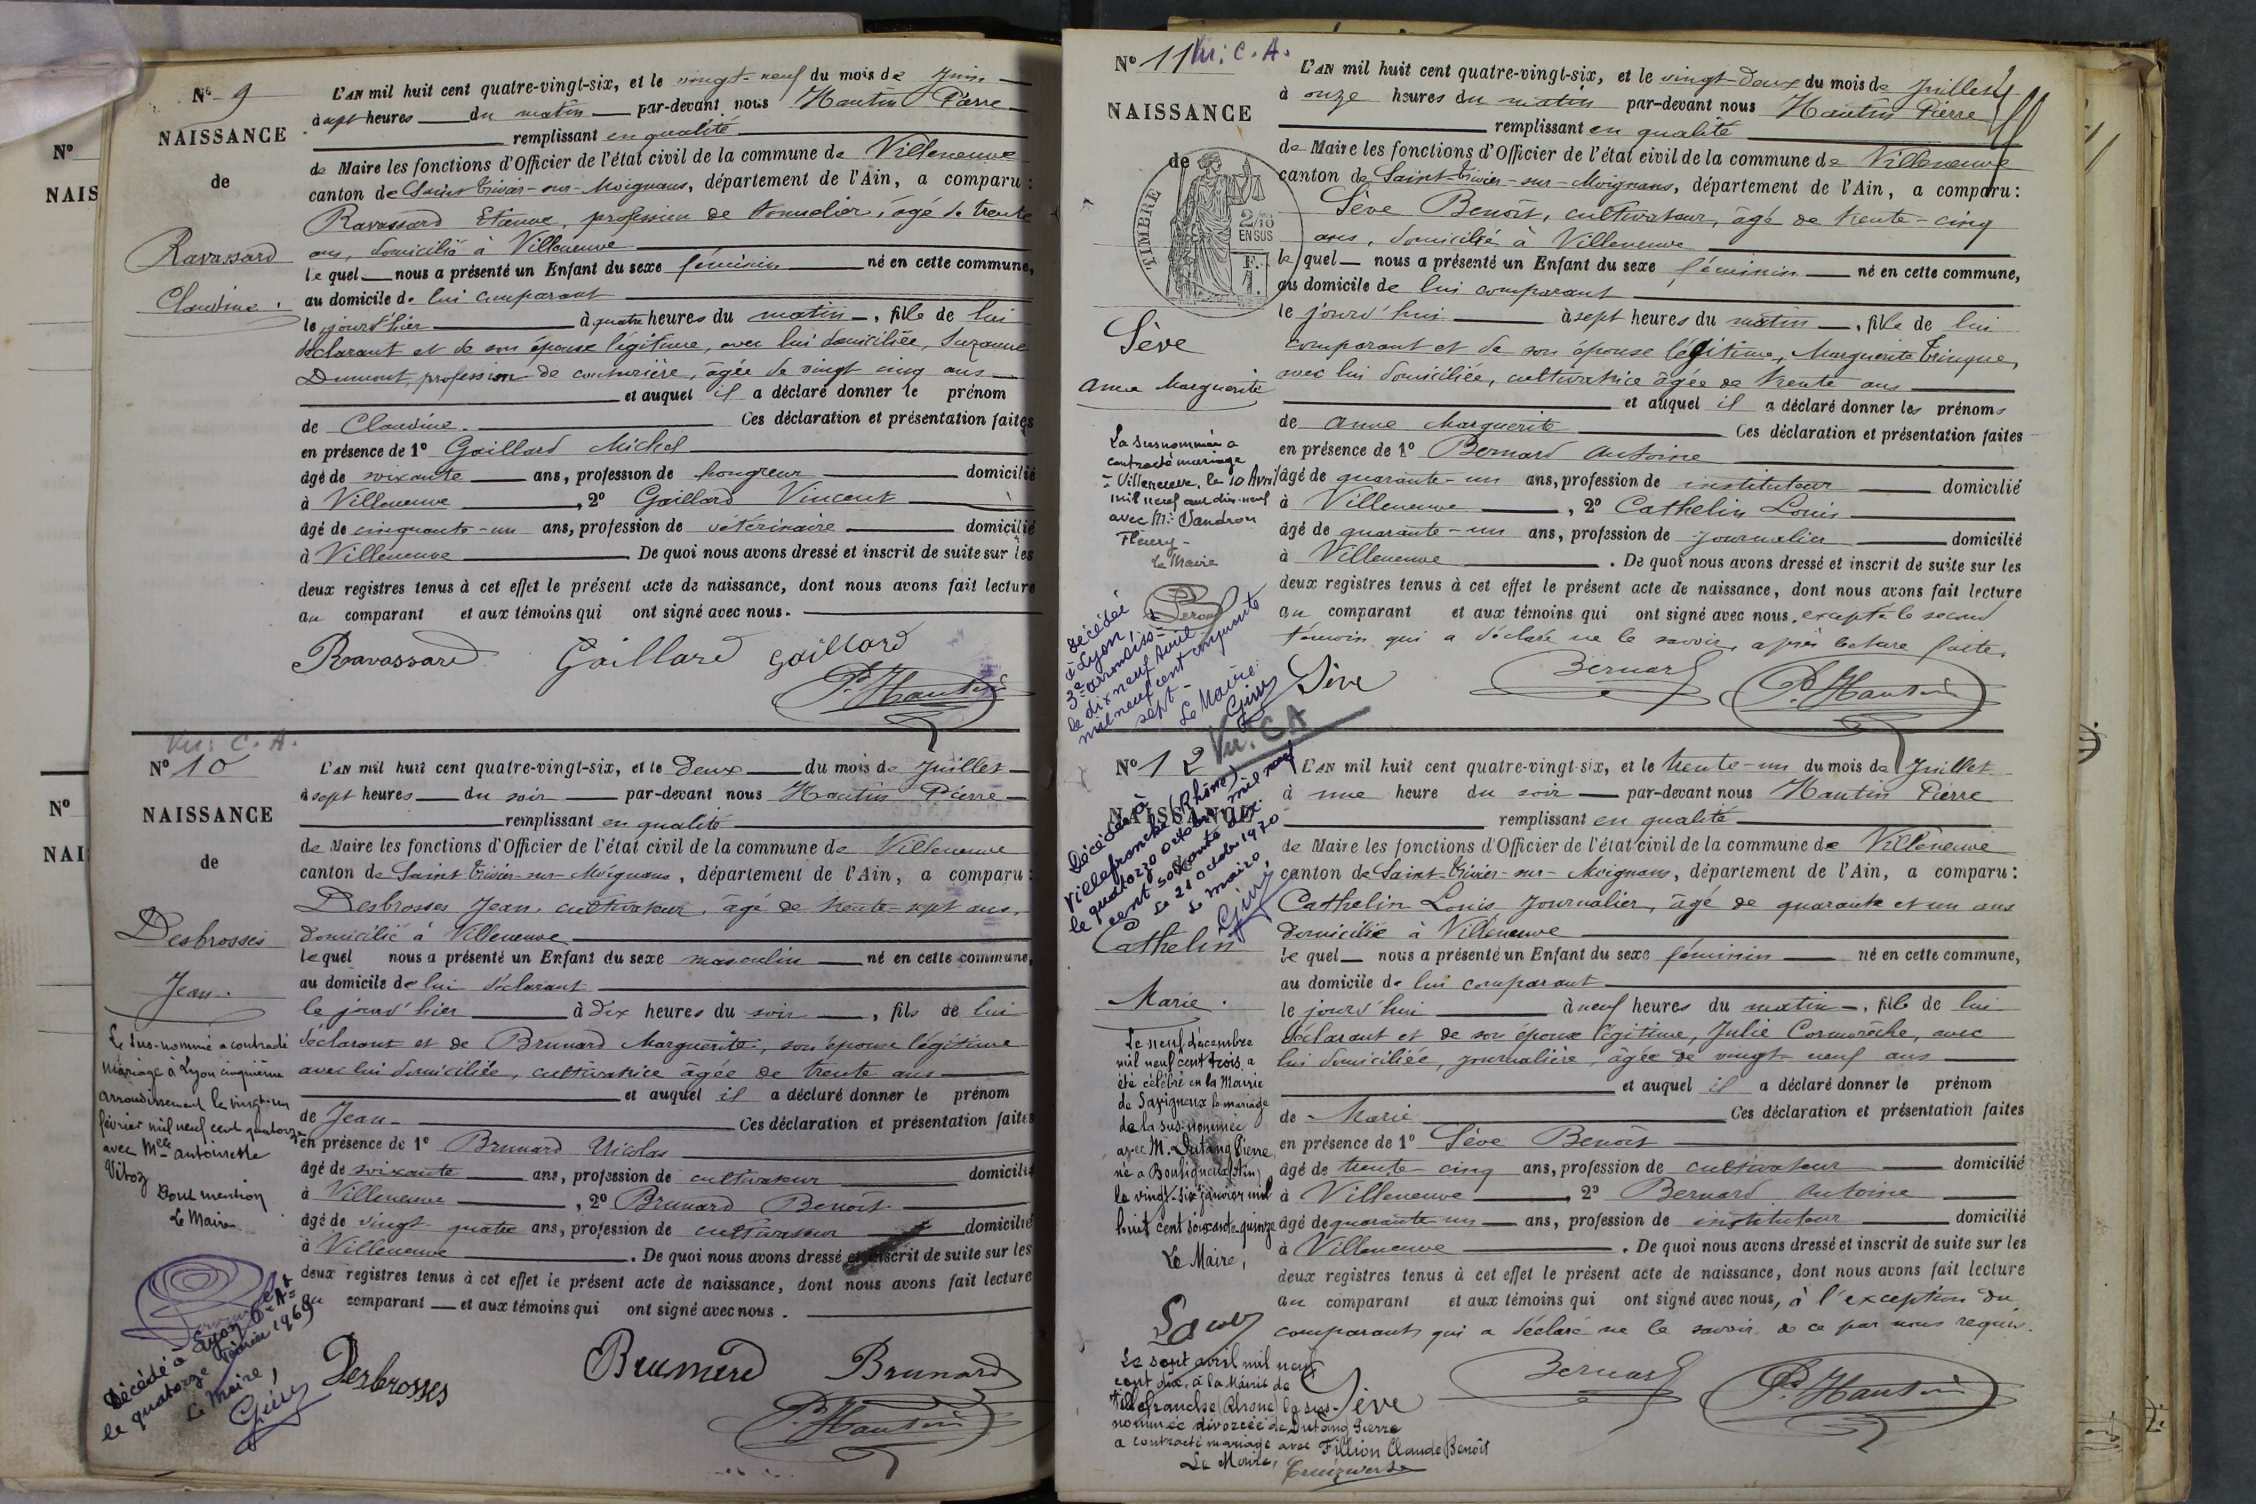 Nº 9
NAISSANCE
de
Ravassard
Claudine.
L'AN mil huit cent quatre-vingt-six, et le vingt-neuf du mois de Juin
à sept heures du matin par-devant nous Hautin Pierre
remplissant en qualité
de Maire les fonctions d'Officier de l'état civil de la commune de Villeneuve
canton de Saint Trivier-sur-Moignans, département de l'Ain, a comparu :
Ravassard Etienne, profession de tonnelier, âgé de trente
ans, domicilié à Villeneuve
lequel nous a présenté un Enfant du sexe féminin né en cette commune,
au domicile de lui comparant
le jour d'hier à quatre heures du matin, fille de lui
déclarant et de son épouse légitime, avec lui domiciliée, Suzanne
Dumont, profession de couturière, âgée de vingt cinq ans
et auquel il a déclaré donner le prénom
de Claudine. Ces déclaration et présentation faites
en présence de 1º Gaillard Michel
âgé de soixante ans, profession de hongreur domicilié
à Villeneuve, 2º Gaillard Vincent
âgé de cinquante-un ans, profession de vétérinaire domicilié
à Villeneuve. De quoi nous avons dressé et inscrit de suite sur les
deux registres tenus à cet effet le présent acte de naissance, dont nous avons fait lecture
au comparant et aux témoins qui ont signé avec nous.
Ravassard Gaillard Gaillard
P. Hautin
Vu: C. A.
Nº 10
NAISSANCE
de
Desbrosses
Jean.
Le sus-nommé a contracté
mariage à Lyon cinquième
arrondissement le vingt-un
février mil neuf cent quatorze
avec Mlle Antoinette
Vitoz
Dont mention
Le Maire
Décédé à Lyon 6e At
le quatorze février 1969
Le Maire,
L'AN mil huit cent quatre-vingt-six, et le Deux du mois de Juillet
à sept heures du soir par-devant nous Hautin Pierre
remplissant en qualité
de Maire les fonctions d'Officier de l'état civil de la commune de Villeneuve
canton de Saint Trivier-sur-Moignans, département de l'Ain, a comparu :
Desbrosses Jean, cultivateur, âgé de trente-sept ans,
domicilié à Villeneuve
lequel nous a présenté un Enfant du sexe masculin né en cette commune,
au domicile de lui déclarant
le jour d'hier à dix heures du soir, fils de lui
déclarant et de Brunard Marguerite, son épouse légitime
avec lui domiciliée, cultivatrice âgée de trente ans
et auquel il a déclaré donner le prénom
de Jean. Ces déclaration et présentation faites
en présence de 1º Brunard Nicolas
âgé de soixante ans, profession de cultivateur domicilié
à Villeneuve, 2º Brunard Benoît.
âgé de vingt-quatre ans, profession de cultivateur domicilié
à Villeneuve. De quoi nous avons dressé et inscrit de suite sur les
deux registres tenus à cet effet le présent acte de naissance, dont nous avons fait lecture
au comparant et aux témoins qui ont signé avec nous.
Desbrosses Brunard Brunard
P. Hautin
Nº 11 Vu: C. A.
NAISSANCE
de
TIMBRE
2/10 EN SUS
Sève
Anne Marguerite
La susnommée a
contracté mariage
à Villeneuve, le 10 Avril
mil neuf cent dix-neuf
avec Mr Dandron
Fleury-
Le Maire
Décédée
à Lyon,
3e arrondiss.t
le dix neuf août
mil neuf cent cinquante
sept-
Le Maire
L'AN mil huit cent quatre-vingt-six, et le vingt-deux du mois de Juillet
à onze heures du matin par-devant nous Hautin Pierre
remplissant en qualité
de Maire les fonctions d'Officier de l'état civil de la commune de Villeneuve
canton de Saint-Trivier-sur-Moignans, département de l'Ain, a comparu :
Sève Benoît, cultivateur, âgé de trente-cinq
ans, domicilié à Villeneuve
lequel nous a présenté un Enfant du sexe féminin né en cette commune,
au domicile de lui comparant
le jourd'hui à sept heures du matin, fille de lui
comparant et de son épouse légitime, Marguerite Trinque,
avec lui domiciliée, cultivatrice âgée de trente ans
et auquel il a déclaré donner les prénoms
de Anne Marguerite Ces déclaration et présentation faites
en présence de 1º Bernard Antoine
âgé de quarante-un ans, profession de instituteur domicilié
à Villeneuve, 2º Cathelin Louis
âgé de quarante-un ans, profession de journalier domicilié
à Villeneuve. De quoi nous avons dressé et inscrit de suite sur les
deux registres tenus à cet effet le présent acte de naissance, dont nous avons fait lecture
au comparant et aux témoins qui ont signé avec nous, excepté le second
témoin qui a déclaré ne le savoir, après lecture faite.
Sève Bernard P. Hautin
Vu: C A
Nº 12
NAISSANCE
Décédée à
Villefranche (Rhône)
le quatorze octobre mil neuf
cent soixante dix.
Le 21 octobre 1970
Le maire,
Cathelin
Marie.
Le neuf décembre
mil neuf cent trois a
été célébré en la Mairie
de Savigneux le mariage
de la sus-nommée
avec M. Dutang Pierre
né à Bouligneux (Ain)
le vingt-six janvier mil
huit cent soixante-quinze
Le Maire,
Le sept avril mil neuf
cent dix, à la Mairie de
Villefranche (Rhône) la sus-
nommée divorcée de Dutang Pierre
a contracté mariage avec Fillion Claude Benoît
Le Maire,
L'AN mil huit cent quatre-vingt-six, et le trente-un du mois de Juillet
à une heure du soir par-devant nous Hautin Pierre
remplissant en qualité
de Maire les fonctions d'Officier de l'état civil de la commune de Villeneuve
canton de Saint-Trivier-sur-Moignans, département de l'Ain, a comparu :
Cathelin Louis journalier, âgé de quarante et un ans
domicilié à Villeneuve
lequel nous a présenté un Enfant du sexe féminin né en cette commune,
au domicile de lui comparant
le jourd'hui à neuf heures du matin, fille de lui
déclarant et de son épouse légitime, Julie Cormorèche, avec
lui domiciliée, journalière, âgée de vingt-neuf ans
et auquel il a déclaré donner le prénom
de Marie Ces déclaration et présentation faites
en présence de 1º Sève Benoît
âgé de trente-cinq ans, profession de cultivateur domicilié
à Villeneuve, 2º Bernard Antoine
âgé de quarante-un ans, profession de instituteur domicilié
à Villeneuve. De quoi nous avons dressé et inscrit de suite sur les
deux registres tenus à cet effet le présent acte de naissance, dont nous avons fait lecture
au comparant et aux témoins qui ont signé avec nous, à l'exception du
comparant qui a déclaré ne le savoir de ce par nous requis.
Sève Bernard P. Hautin